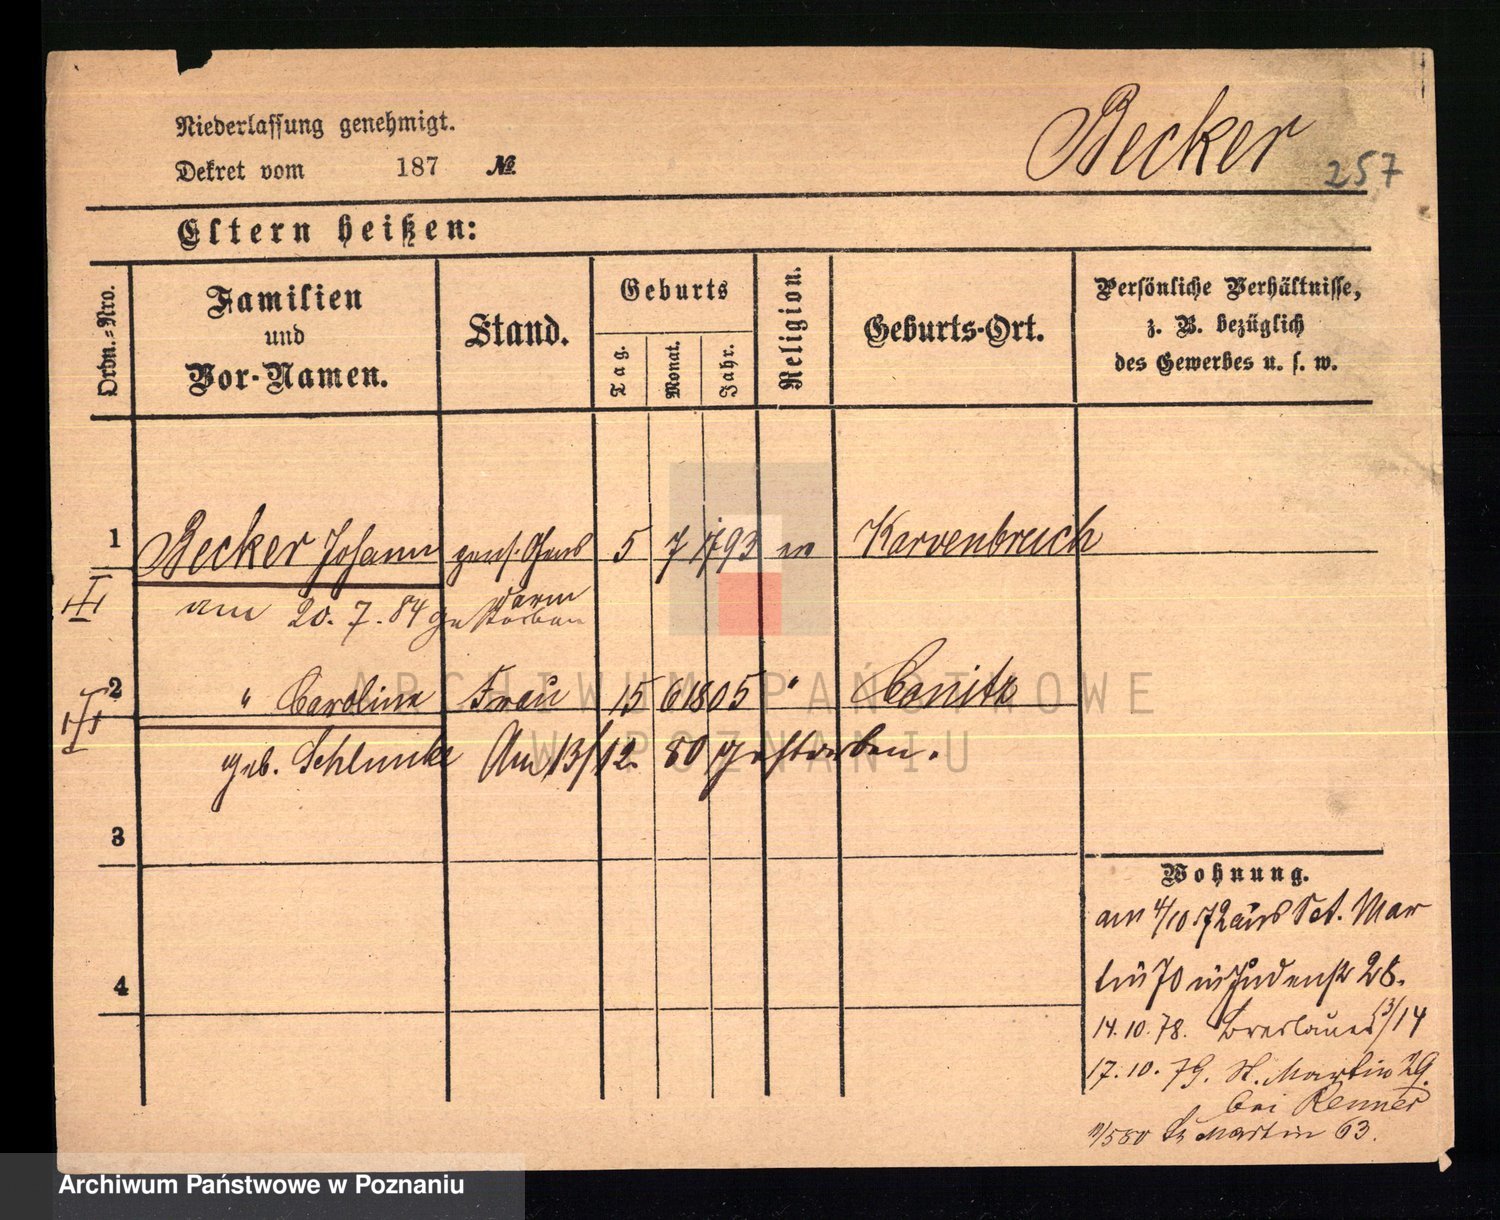 Niederlassung genehmigt.
Becker
257
Dekret vom 187 №
Eltern heißen:
Ordn.-Nro.
Familien
und
Vor-Namen.
Stand.
Geburts
Tag.
Monat.
Jahr.
Religion.
Geburts-Ort.
Persönliche Verhältnisse,
z. B. bezüglich
des Gewerbes u. s. w.
1 Becker Johann pens. 5 7 1793 ev Karvenbruch
am 20. 7. 84 gestorben
2 " Caroline Frau 15 6 1805 " Conitz
geb. Schlunke Am 13/12 80 gestorben.
3
4
Wohnung.
am 4/10 72 aus Sct. Mar
tin 70 in Judenstr 28.
14. 10. 78. Breslauer 13/14
17. 10. 79. St. Martin 29
bei Renner
St Martin 63.
ARCHIWUM PAŃSTWOWE
W POZNANIU
Archiwum Państwowe w Poznaniu